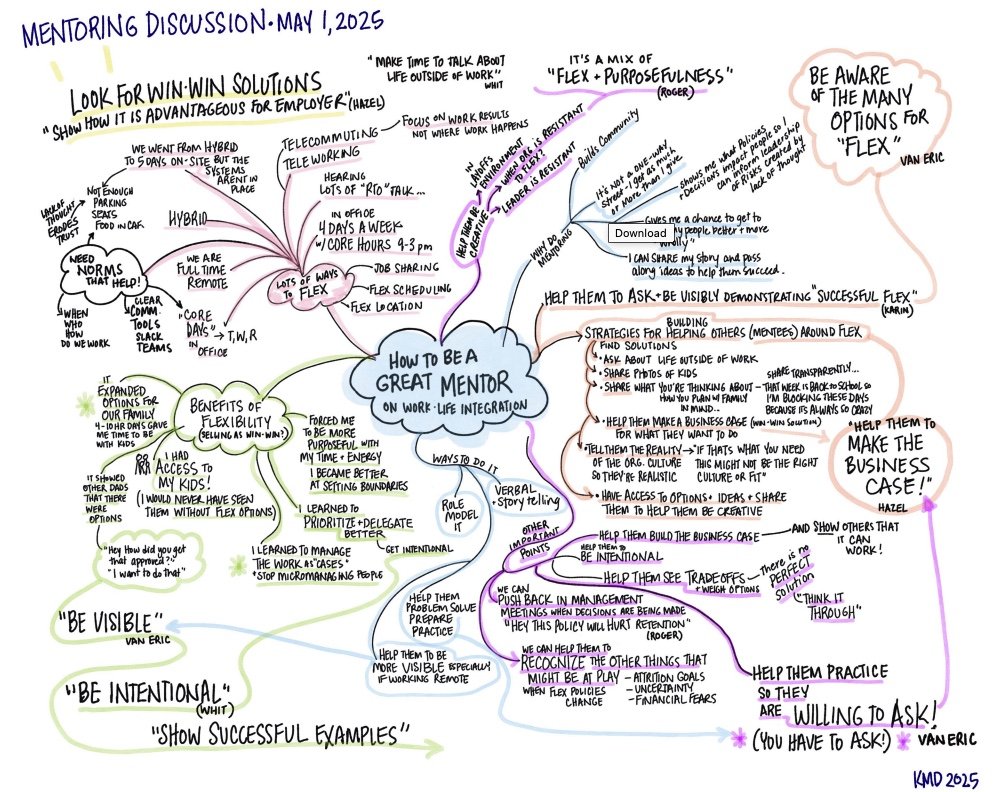 MENTORING DISCUSSION • MAY 1, 2025
LOOK FOR WIN-WIN SOLUTIONS
"SHOW HOW IT IS ADVANTAGEOUS FOR EMPLOYER" (HAZEL)
"MAKE TIME TO TALK ABOUT
LIFE OUTSIDE OF WORK"
WHIT
IT'S A MIX OF
"FLEX + PURPOSEFULNESS"
(ROGER)
BE AWARE
OF THE MANY
OPTIONS FOR
"FLEX"
VAN ERIC
WE WENT FROM HYBRID
TO 5 DAYS ON-SITE BUT THE
SYSTEMS
ARENT IN
PLACE
TELECOMMUTING
TELE WORKING
FOCUS ON WORK RESULTS
NOT WHERE WORK HAPPENS
HEARING
LOTS OF "RTO" TALK...
IN OFFICE
4 DAYS A WEEK
W/ CORE HOURS 9-3 pm
JOB SHARING
FLEX SCHEDULING
FLEX LOCATION
LOTS OF WAYS
TO FLEX
HYBRID
WE ARE
FULL TIME
REMOTE
LACK OF
THOUGHT
ERODES
TRUST
NOT ENOUGH
PARKING
SEATS
FOOD IN CAF.
NEED
NORMS
THAT HELP!
WHEN
WHO
HOW
DO WE WORK
CLEAR
COMM.
TOOLS
SLACK
TEAMS
"CORE
DAYS" → T, W, R
IN
OFFICE
HELP THEM BE
CREATIVE
IN
LAYOFFS
ENVIRONMENT
WHEN ORG IS RESISTANT
TO FLEX?
LEADER IS RESISTANT
WHY DO
MENTORING
Builds Community
It's not a one-way
street - I get as much
or more than I give
shows me what Policies
+ Decisions impact people so I
can inform leadership
of Risks created by
lack of thought
Gives me a chance to get to
Download
my people better + more
wholly"
I can share my story and pass
along ideas to help them succeed.
HELP THEM TO ASK + BE VISIBLY DEMONSTRATING "SUCCESSFUL FLEX"
(KARIN)
HOW TO BE A
GREAT MENTOR
ON WORK-LIFE INTEGRATION
BUILDING
STRATEGIES FOR HELPING OTHERS (MENTEES) AROUND FLEX
FIND SOLUTIONS
• ASK ABOUT LIFE OUTSIDE OF WORK
• SHARE PHOTOS OF KIDS
• SHARE WHAT YOU'RE THINKING ABOUT -
HOW YOU PLAN W/ FAMILY
IN MIND...
SHARE TRANSPARENTLY...
THAT WEEK IS BACK TO SCHOOL SO
I'M BLOCKING THESE DAYS
BECAUSE ITS ALWAYS SO CRAZY
• HELP THEM MAKE A BUSINESS CASE (WIN-WIN SOLUTION)
FOR WHAT THEY WANT TO DO
• TELL THEM THE REALITY → "IF THATS WHAT YOU NEED
OF THE ORG. CULTURE THIS MIGHT NOT BE THE RIGHT
SO THEY'RE REALISTIC CULTURE OR FIT"
• HAVE ACCESS TO OPTIONS + IDEAS + SHARE
THEM TO HELP THEM BE CREATIVE
"HELP THEM TO
MAKE THE
BUSINESS
CASE!"
HAZEL
BENEFITS OF
FLEXIBILITY
(SELLING AS WIN-WIN?)
IT
EXPANDED
OPTIONS FOR
OUR FAMILY
4-10 HR DAYS GAVE
ME TIME TO BE
WITH KIDS
I HAD
ACCESS TO
MY KIDS!
(I WOULD NEVER HAVE SEEN
THEM WITHOUT FLEX OPTIONS)
IT SHOWED
OTHER DADS
THAT THERE
WERE
OPTIONS
"Hey How did you get
that approved?"
"I want to do that"
FORCED ME
TO BE MORE
PURPOSEFUL WITH
MY TIME + ENERGY
I BECAME BETTER
AT SETTING BOUNDARIES
I LEARNED TO
PRIORITIZE + DELEGATE
BETTER
GET INTENTIONAL
I LEARNED TO MANAGE
THE WORK AS "CASES"
• STOP MICROMANAGING PEOPLE
WAYS TO DO IT
ROLE
MODEL
IT
VERBAL
• storytelling
HELP THEM
PROBLEM SOLVE
PREPARE
PRACTICE
HELP THEM TO BE
MORE VISIBLE ESPECIALLY
IF WORKING REMOTE
OTHER
IMPORTANT
POINTS
HELP THEM BUILD THE BUSINESS CASE
AND SHOW OTHERS THAT
IT CAN
WORK!
HELP THEM TO
BE INTENTIONAL
HELP THEM SEE TRADEOFFS
+ WEIGH OPTIONS
There is no
PERFECT
Solution
"THINK IT
THROUGH"
WE CAN
PUSH BACK IN MANAGEMENT
MEETINGS WHEN DECISIONS ARE BEING MADE
"HEY THIS POLICY WILL HURT RETENTION"
(ROGER)
WE CAN HELP THEM TO
RECOGNIZE THE OTHER THINGS THAT
MIGHT BE AT PLAY
WHEN FLEX POLICIES
CHANGE
- ATTRITION GOALS
- UNCERTAINTY
- FINANCIAL FEARS
HELP THEM PRACTICE
SO THEY
ARE WILLING TO ASK!
(YOU HAVE TO ASK!) VAN ERIC
"BE VISIBLE"
VAN ERIC
"BE INTENTIONAL"
(WHIT)
"SHOW SUCCESSFUL EXAMPLES"
KMD 2025